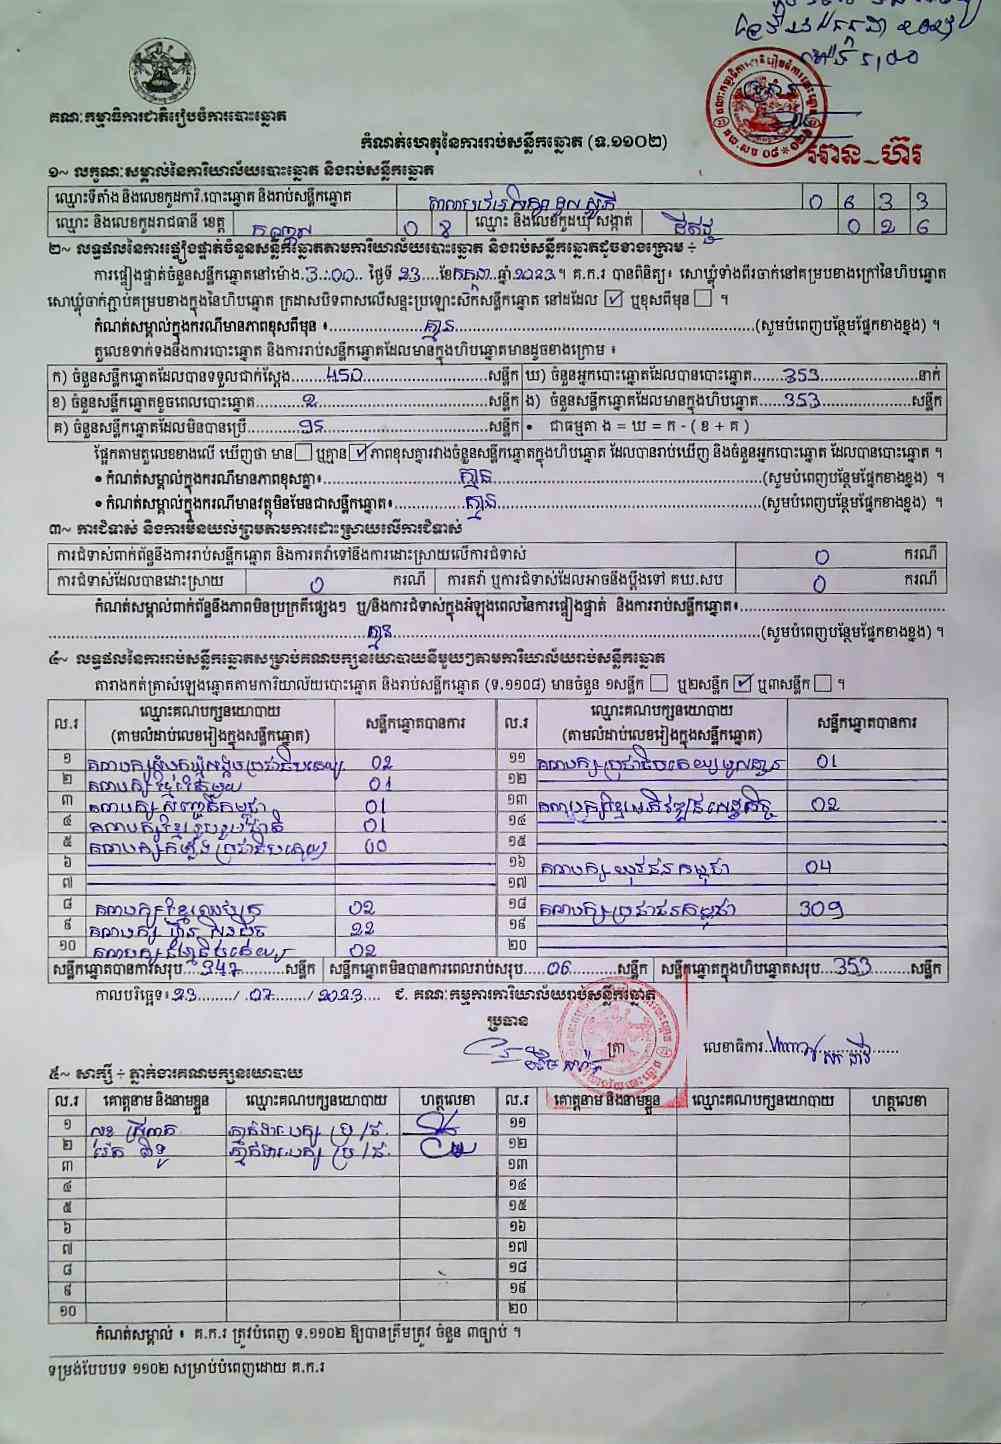 គណៈកម្មាធិការជាតិរៀបចំការបោះឆ្នោត
កំណត់ហេតុនៃការរាប់សន្លឹកឆ្នោត (ទ.១១០២)
អាន_ហ៊រ
១~ លក្ខណៈសម្គាល់នៃការិយាល័យបោះឆ្នោត និងរាប់សន្លឹកឆ្នោត
ឈ្មោះទីតាំង និងលេខកូដការិ.បោះឆ្នោត និងរាប់សន្លឹកឆ្នោត 0 6 3 3
ឈ្មោះ និងលេខកូដរាជធានី ខេត្ត កណ្តាល 0 8 ឈ្មោះ និងលេខកូដឃុំ សង្កាត់ 0 2 6
២~ លទ្ធផលនៃការផ្ទៀងផ្ទាត់ចំនួនសន្លឹកឆ្នោតតាមការិយាល័យបោះឆ្នោត និងរាប់សន្លឹកឆ្នោតដូចខាងក្រោម ៖
ការផ្ទៀងផ្ទាត់ចំនួនសន្លឹកឆ្នោតនៅម៉ោង.3:00.. ថ្ងៃទី 23....ខែកក្កដា.ឆ្នាំ.2023.។ គ.ក.រ បានពិនិត្យ៖ សោឃ្លុំទាំងពីរចាក់នៅគម្របខាងក្រៅនៃហិបឆ្នោត
សោឃ្លុំចាក់ភ្ជាប់គម្របខាងក្នុងនៃហិបឆ្នោត ក្រដាសបិទពាសលើសន្ទះប្រឡោះស៊កសន្លឹកឆ្នោត នៅដដែល ☑ ឬខុសពីមុន ☐ ។
កំណត់សម្គាល់ក្នុងករណីមានភាពខុសពីមុន ៖..........គ្មាន..........(សូមបំពេញបន្ថែមផ្នែកខាងខ្នង) ។
តួលេខទាក់ទងនឹងការបោះឆ្នោត និងការរាប់សន្លឹកឆ្នោតដែលមានក្នុងហិបឆ្នោតមានដូចខាងក្រោម ៖
ក) ចំនួនសន្លឹកឆ្នោតដែលបានទទួលជាក់ស្តែង.......450..........សន្លឹក ឃ) ចំនួនអ្នកបោះឆ្នោតដែលបានបោះឆ្នោត.......353..........នាក់
ខ) ចំនួនសន្លឹកឆ្នោតខូចពេលបោះឆ្នោត..........2..........សន្លឹក ង) ចំនួនសន្លឹកឆ្នោតដែលមានក្នុងហិបឆ្នោត.....353..........សន្លឹក
គ) ចំនួនសន្លឹកឆ្នោតដែលមិនបានប្រើ..........95..........សន្លឹក • ជាធម្មតា ង = ឃ = ក - ( ខ + គ )
ផ្អែកតាមតួលេខខាងលើ ឃើញថា មាន ☐ ឬគ្មាន ☑ ភាពខុសគ្នារវាងចំនួនសន្លឹកឆ្នោតក្នុងហិបឆ្នោត ដែលបានរាប់ឃើញ និងចំនួនអ្នកបោះឆ្នោត ដែលបានបោះឆ្នោត ។
• កំណត់សម្គាល់ក្នុងករណីមានភាពខុសគ្នា៖..........គ្មាន..........(សូមបំពេញបន្ថែមផ្នែកខាងខ្នង) ។
• កំណត់សម្គាល់ក្នុងករណីមានវត្ថុមិនមែនជាសន្លឹកឆ្នោត៖..........គ្មាន..........(សូមបំពេញបន្ថែមផ្នែកខាងខ្នង) ។
៣~ ការជំទាស់ និងការមិនយល់ព្រមតាមការដោះស្រាយលើការជំទាស់
ការជំទាស់ពាក់ព័ន្ធនឹងការរាប់សន្លឹកឆ្នោត និងការតវ៉ាទៅនឹងការដោះស្រាយលើការជំទាស់ 0 ករណី
ការជំទាស់ដែលបានដោះស្រាយ 0 ករណី ការតវ៉ា ឬការជំទាស់ដែលអាចនឹងប្តឹងទៅ គឃ.សប 0 ករណី
កំណត់សម្គាល់ពាក់ព័ន្ធនឹងភាពមិនប្រក្រតីផ្សេងៗ ឬ/និងការជំទាស់ក្នុងអំឡុងពេលនៃការផ្ទៀងផ្ទាត់ និងការរាប់សន្លឹកឆ្នោត៖..........
..........គ្មាន..........(សូមបំពេញបន្ថែមផ្នែកខាងខ្នង) ។
៤~ លទ្ធផលនៃការរាប់សន្លឹកឆ្នោតសម្រាប់គណបក្សនយោបាយនីមួយៗតាមការិយាល័យរាប់សន្លឹកឆ្នោត
តារាងកត់ត្រាសំឡេងឆ្នោតតាមការិយាល័យបោះឆ្នោត និងរាប់សន្លឹកឆ្នោត (ទ.១១០៨) មានចំនួន ១សន្លឹក ☐ ឬ២សន្លឹក ☑ ឬ៣សន្លឹក ☐ ។
ល.រ ឈ្មោះគណបក្សនយោបាយ (តាមលំដាប់លេខរៀងក្នុងសន្លឹកឆ្នោត) សន្លឹកឆ្នោតបានការ ល.រ ឈ្មោះគណបក្សនយោបាយ (តាមលំដាប់លេខរៀងក្នុងសន្លឹកឆ្នោត) សន្លឹកឆ្នោតបានការ
១ 02 ១១ គណបក្សប្រជាធិបតេយ្យមូលដ្ឋាន 01
២ 01 ១២
៣ គណបក្សសញ្ជាតិកម្ពុជា 01 ១៣ គណបក្សខ្មែរអភិវឌ្ឍន៍សេដ្ឋកិច្ច 02
៤ គណបក្សខ្មែររួបរួមជាតិ 01 ១៤
៥ គណបក្សកម្លាំងប្រជាធិបតេយ្យ 00 ១៥
៦ ១៦ គណបក្សយុវជនកម្ពុជា 04
៧ ១៧
៨ 02 ១៨ គណបក្សប្រជាជនកម្ពុជា 309
៩ គណបក្សហ៊្វុនស៊ិនប៉ិច 22 ១៩
១០ 02 ២០
សន្លឹកឆ្នោតបានការសរុប...347..........សន្លឹក សន្លឹកឆ្នោតមិនបានការពេលរាប់សរុប.....06..........សន្លឹក សន្លឹកឆ្នោតក្នុងហិបឆ្នោតសរុប...353........សន្លឹក
កាលបរិច្ឆេទ៖23......../.07......../2023.... ជ. គណៈកម្មការការិយាល័យរាប់សន្លឹកឆ្នោត
ប្រធាន
ត្រា លេខាធិការ
៥~ សាក្សី ៖ ភ្នាក់ងារគណបក្សនយោបាយ
ល.រ គោត្តនាម និងនាមខ្លួន ឈ្មោះគណបក្សនយោបាយ ហត្ថលេខា ល.រ គោត្តនាម និងនាមខ្លួន ឈ្មោះគណបក្សនយោបាយ ហត្ថលេខា
១ ១១
២ ១២
៣ ១៣
៤ ១៤
៥ ១៥
៦ ១៦
៧ ១៧
៨ ១៨
៩ ១៩
១០ ២០
កំណត់សម្គាល់ ៖ គ.ក.រ ត្រូវបំពេញ ទ.១១០២ ឱ្យបានត្រឹមត្រូវ ចំនួន ៣ច្បាប់ ។
ទម្រង់បែបបទ ១១០២ សម្រាប់បំពេញដោយ គ.ក.រ